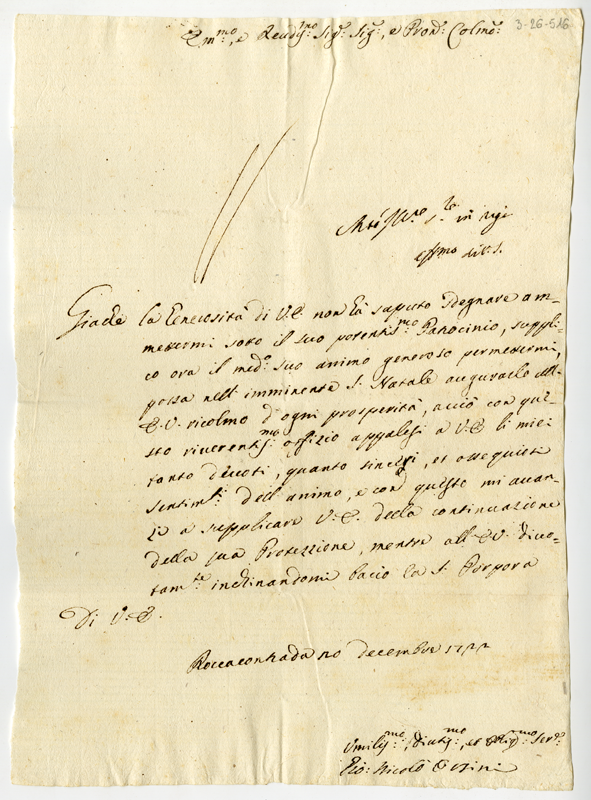 3-26-516
Em.mo, e Reud.mo Sig.r Sig.r, e Pron. Colmo:
Giache la Generosità di V.E. non hà saputo sdegnare am-
mettermi sotto il suo potentis.mo Patrocinio, suppli-
co ora il med.o suo animo generoso permettermi,
possa nell imminente S. Natale augurarlo all'
E.V. ricolmo d'ogni prosperità, acciò con que-
sto riuerentis.mo offizio appalesi a V.E. li miei
tanto deuoti, quanto sinceri, et ossequiosi
sentim.ti dell'animo, e con questo mi auan-
zo a supplicare V.E. della continuazione
della sua Protezzione, mentre all'E.V. diuo-
tam.te inchinandomi bacio la S. Porpora
Di V.E.
Roccacontrada 20 decembre 1722
Umilis.mo, Diuotis.mo, et Oblig.mo Ser.re
Gio: Nicolò